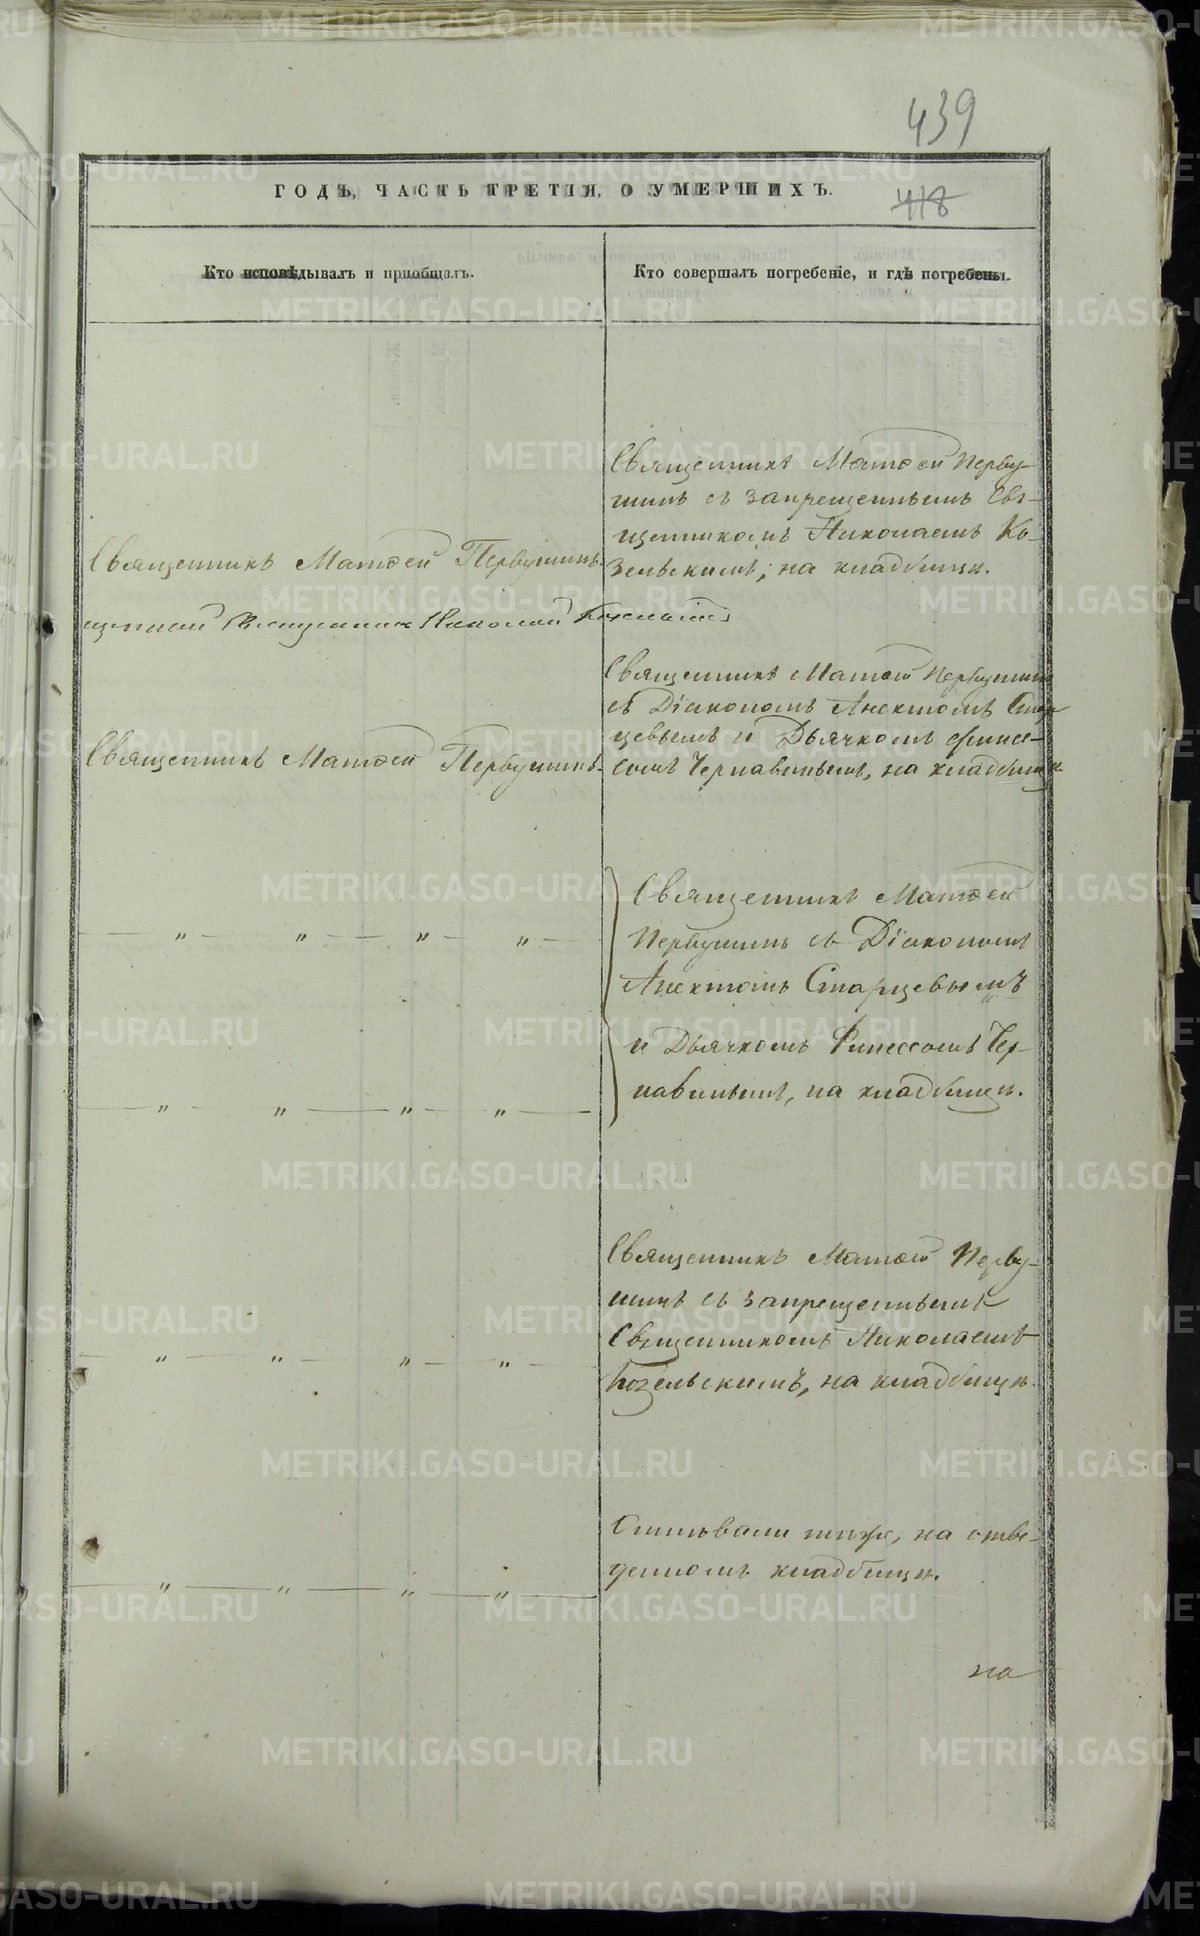 439
ГОДЪ, ЧАСТЬ ТРЕТІЯ, О УМЕРШИХЪ.
418
Кто исповѣдывалъ и пріобщалъ.
Кто совершалъ погребеніе, и гдѣ погребены.
Священникъ Матѳей Перву-
шинъ съ запрещеннымъ Свя-
щенникомъ Николаемъ Ко-
зельскимъ, на кладбищѣ.
Священникъ Матѳей Первушинъ.
Священникъ Николай Козельскій
Священникъ Матѳей Первушинъ
съ Діакономъ Анектомъ Стар
цевымъ и Дьячкомъ Финее-
сомъ Чернавинымъ, на кладбищѣ
Священникъ Матѳей Первушинъ.
Священникъ Матѳей
Первушинъ съ Діакономъ
Анектомъ Старцевымъ
и Дьячкомъ Финеесомъ Чер-
навинымъ, на кладбищѣ.
— „ — „ — „ — „ —
— „ — „ — „ — „ —
Священникъ Матѳей Перву-
шинъ съ запрещеннымъ
Священникомъ Николаемъ
Козельскимъ, на кладбищѣ.
— „ — „ — „ — „ —
Отпѣвали тѣже, на отве-
денномъ кладбищѣ.
— „ — „ — „ — „ —
на
METRIKI.GASO-URAL.RU